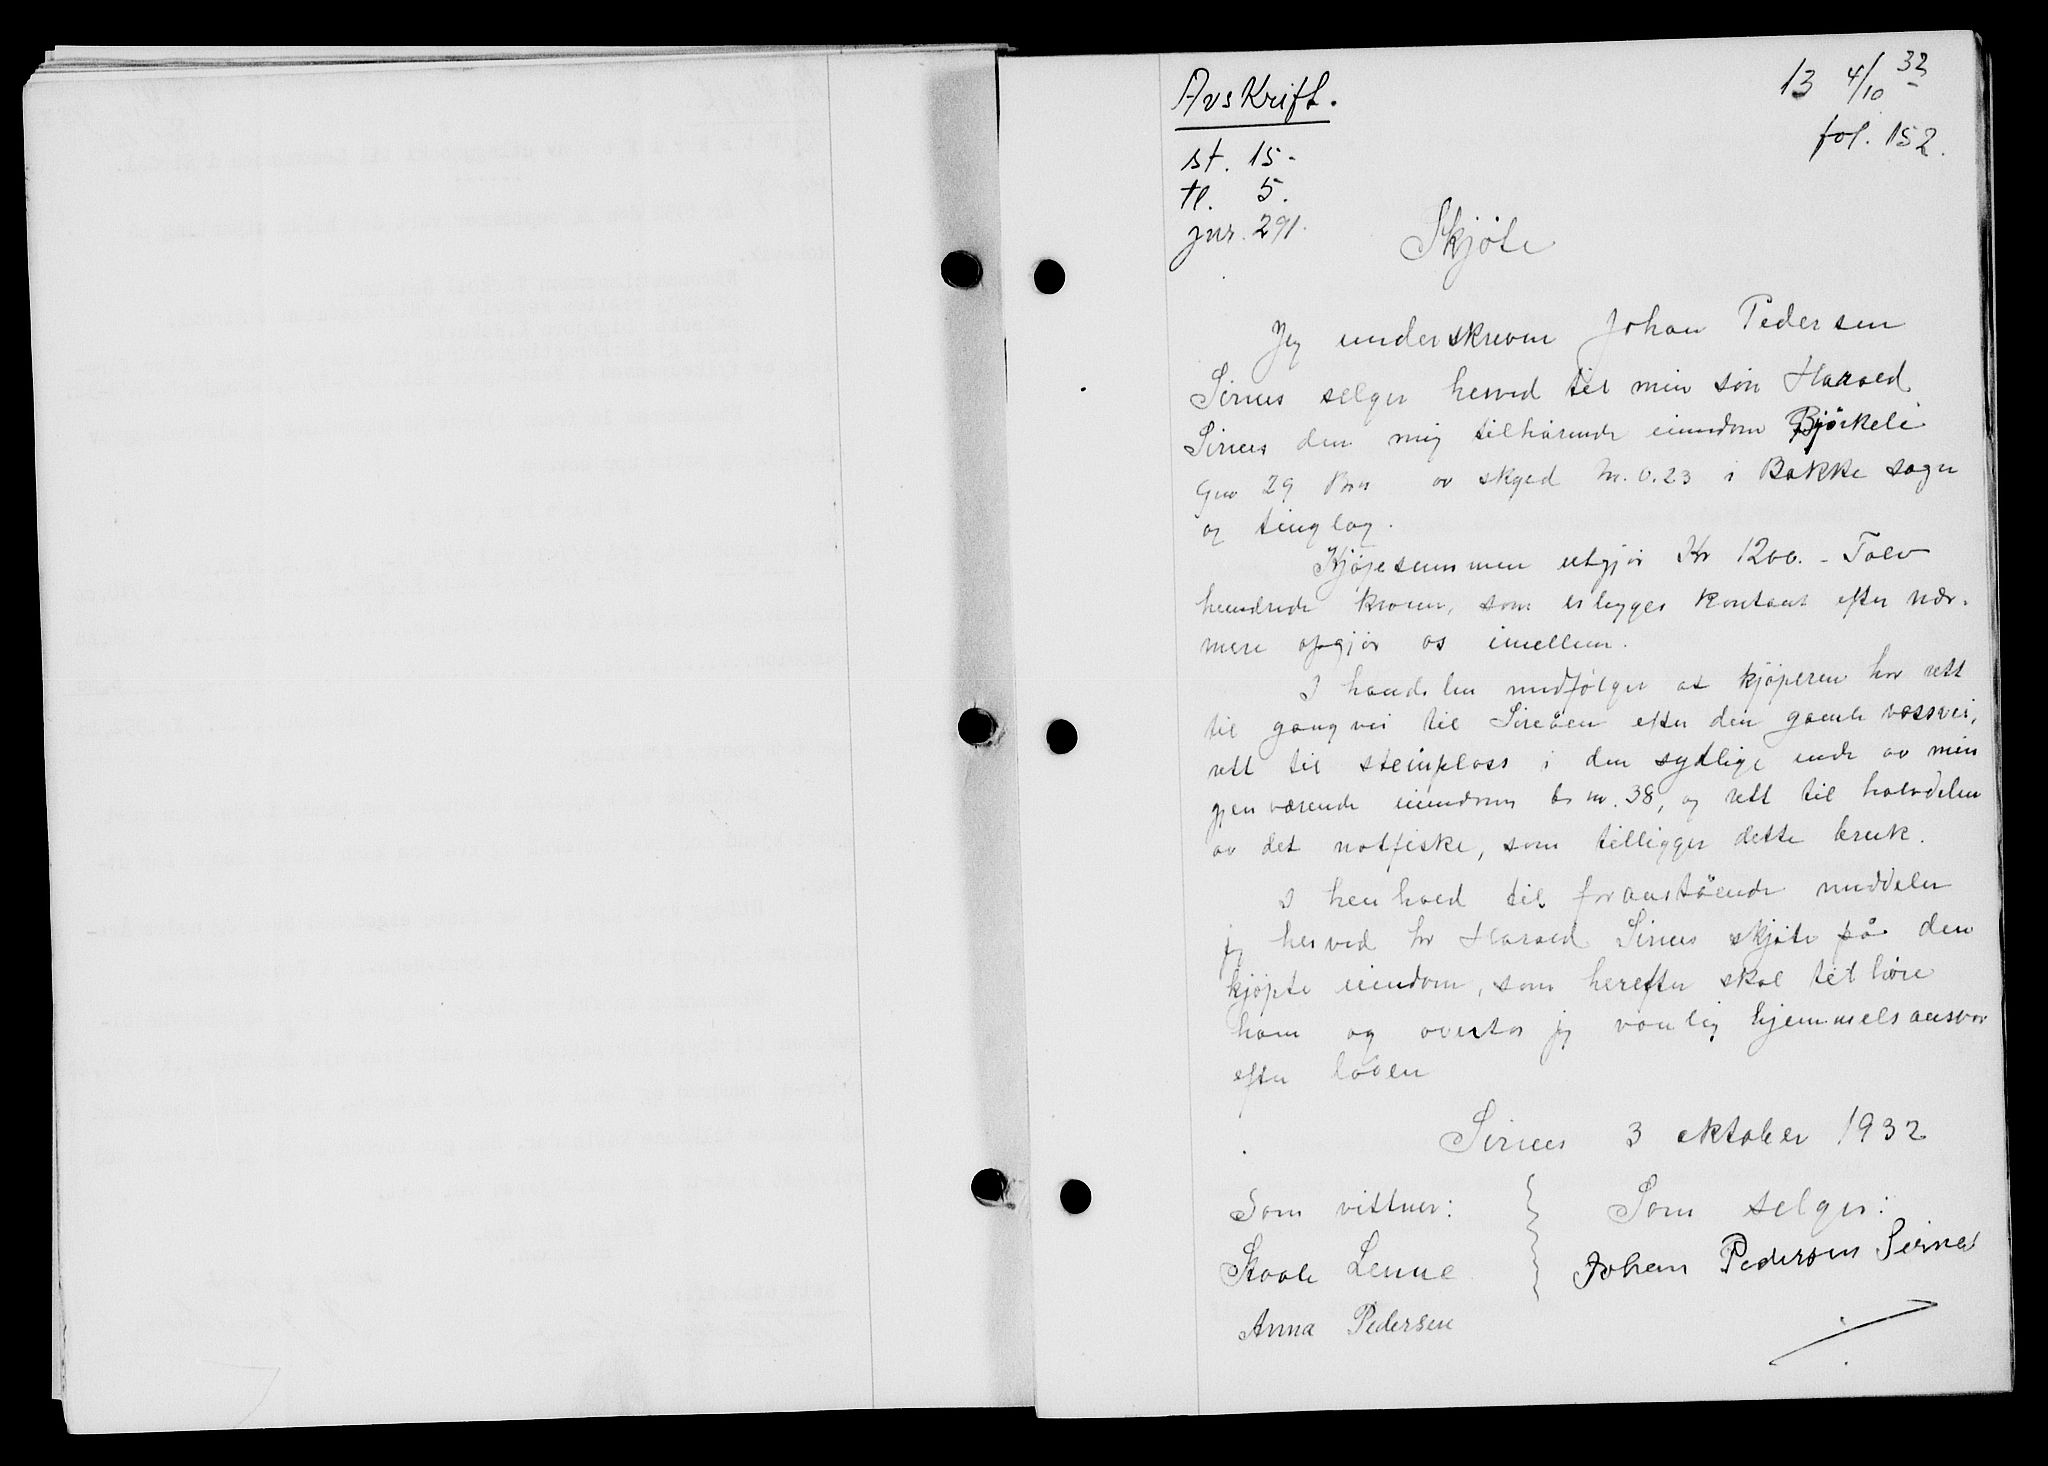 Avskrift.
13 4/10 32
fol. 152.
st. 15-
tl. 5.
jnr. 291.
Skjöte
Jeg underskreven Johan Pedersen
Sirnes selger herved til min sön Harald
Sirnes den mig tilhörende eiendom Björkeli
Gnr 29 Bnr av skyld m. 0.23 i Bakke sogn
og tinglag.
Kjöpesummen utgjör Kr 1200.- Tolv
hundrede kroner, som erlegges kontant efter nær-
mere opgjör os imellem.
I handelen medfölger at kjöperen har rett
til gangvei til Sireåen efter den gamle vassvei,
rett til steinplass i den sydlige ende av min
gjenværende eiendom br nr. 38, og rett til halvdelen
av det notfiske, som tilligger dette bruk.
I henhold til foranstående meddeler
jeg herved hr Harald Sirnes skjöte på den
kjöpte eiendom, som herefter skal tilhöre
ham og overtar jeg vanlig hjemmelsansvar
efter loven
Sirnes 3 oktober 1932
Som vittner: Som selger:
Staale Johan Pedersen Sirnes
Anna Pedersen